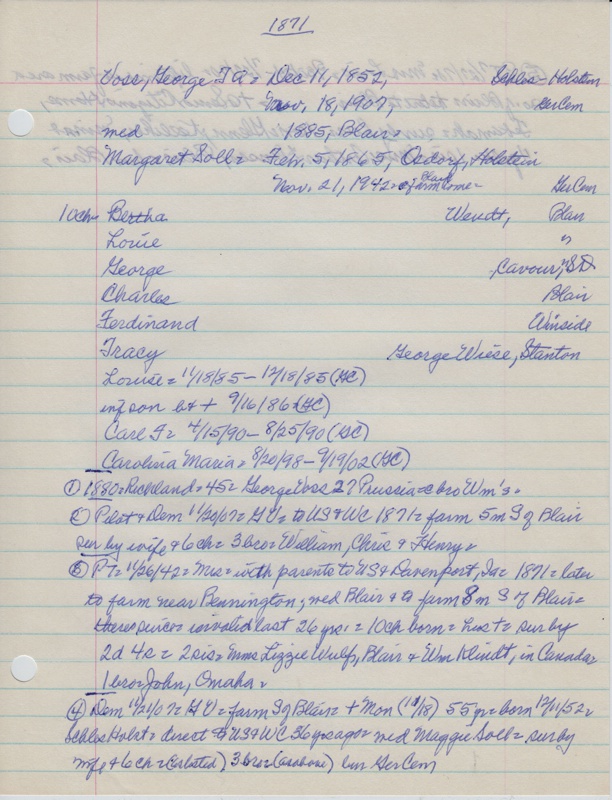 1871
Voss, George = Dec 11, 1852, Schles-Holstein
Nov. 18, 1907, GerCem
med 1885, Blair =
Margaret Soll = Feb. 5, 1865, Osdorf, Holstein
Nov. 21, 1942 = farm home = GerCem
Blair
10ch = Bertha Wendt, Blair
Louie "
George Cavour, SD
Charles Blair
Ferdinand Winside
Tracy George Wiese, Stanton
Louise = 11/18/85 - 12/18/85 (GC)
inf son b & + 9/16/86 = (GC)
Carl F = 4/15/90 - 8/25/90 (GC)
Carolina Maria = 8/20/98 - 9/19/02 (GC)
① 1880 = Richland = 45 = George Voss 27 Prussia = bro Wm's =
Pilot & Dem 11/20/07 = GV = to US & WC 1871 = farm 5m S of Blair
sur by wife & 6 ch = 3 bro = William, Chris & Henry =
③ PT = 11/26/42 = Mrs = with parents to US & Davenport, Ia = 1871 = later
to farm near Bennington, med Blair & to farm 8m S of Blair =
there since = invalid last 26 yrs. = 10ch born = hus + = sur by
2d 4s = 2sis = Mmes Lizzie Wulf, Blair & Wm Klindt, in Canada =
1bro = John, Omaha =
④ Dem 11/21/07 = GV = farm S of Blair = + Mon (11/18) 55 yr = born 12/11/52 =
Schles Holst = direct to US & WC 36 yrs ago = med Maggie Soll = sur by
wife & 6 ch = (listed), 3 bro = (as above) bur GerCem